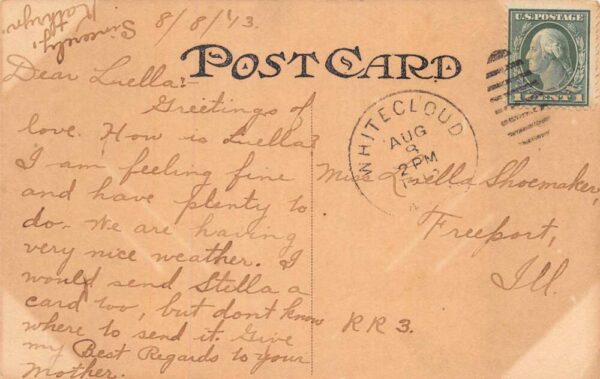 Sincerely,
Kathryn.
8/8/'13.
POST CARD
U.S. POSTAGE
1 CENT 1
WHITECLOUD
AUG
8
2 PM
Dear Luella:-
Greetings of
love. How is Luella?
I am feeling fine
and have plenty to
do. We are having
very nice weather. I
would send Stella a
card too, but don't know
where to send it. Give
my Best Regards to your
Mother.
Miss Luella Shoemaker,
Freeport,
Ill.
RR 3.